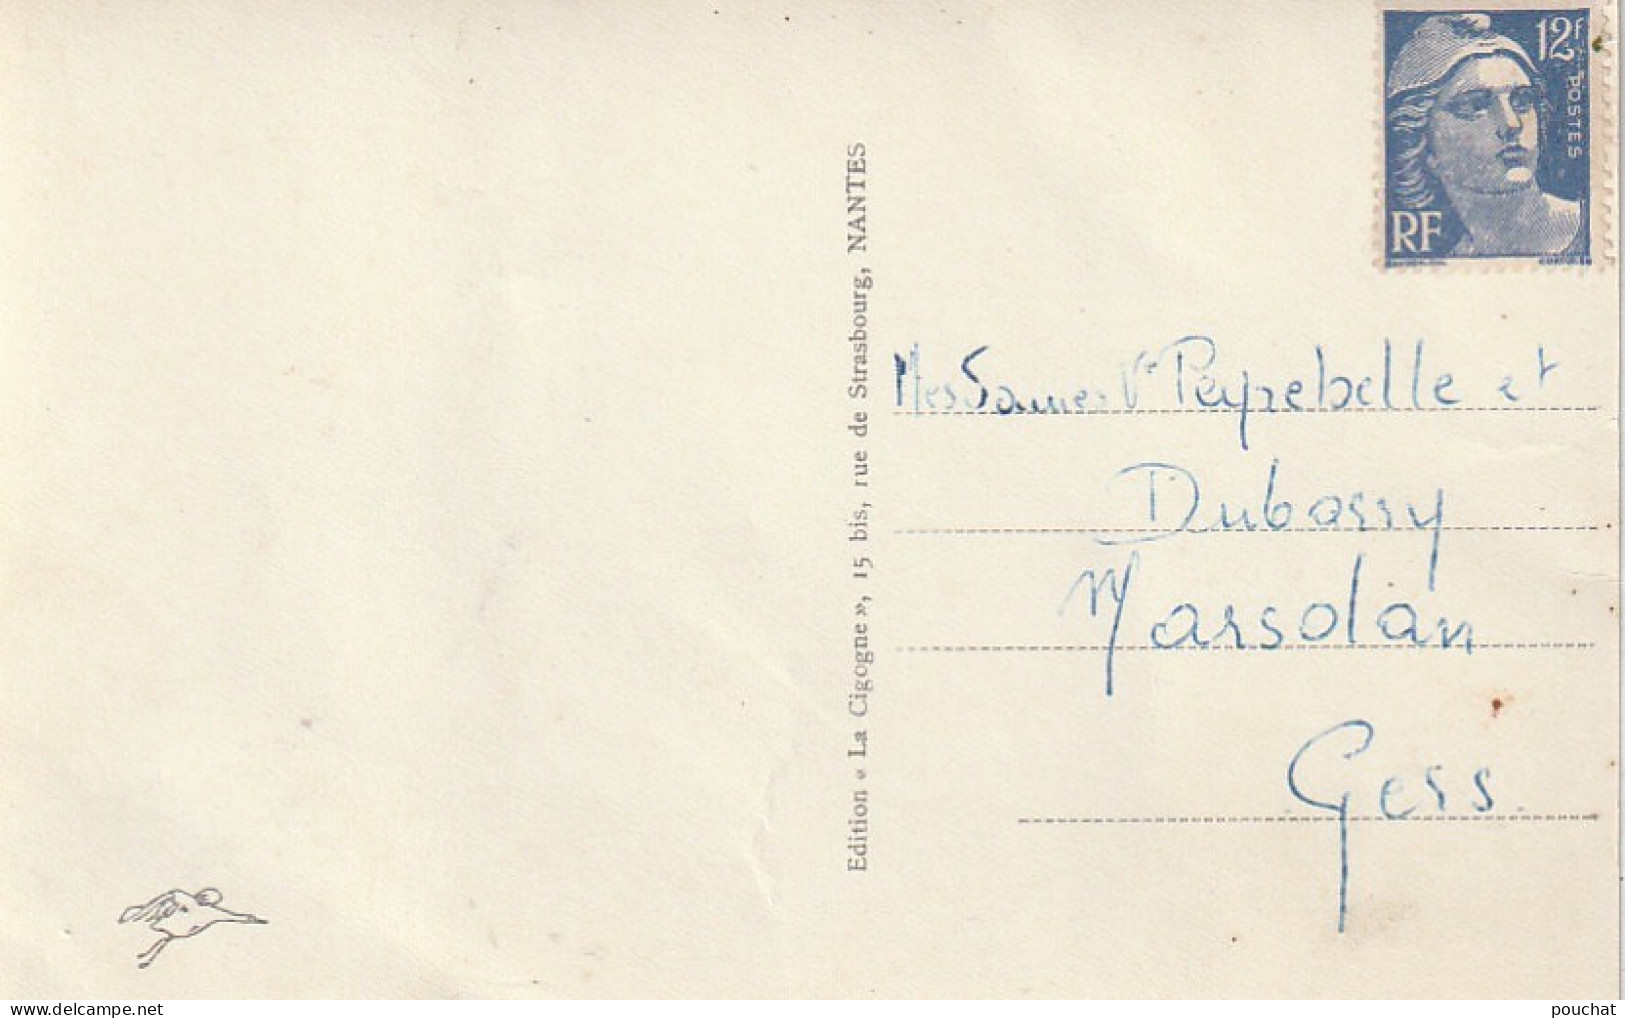 12F
POSTES
RF
Edition « La Cigogne », 15 bis, rue de Strasbourg, NANTES
Mesdames Ve Peyrebelle et
Dubarry
Marsolan
Gers.
www.delcampe.net
pouchat